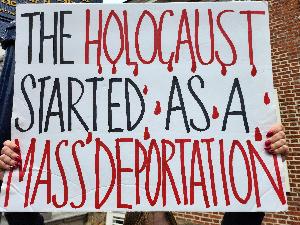 THE HOLOCAUST
STARTED AS A
MASS DEPORTATION